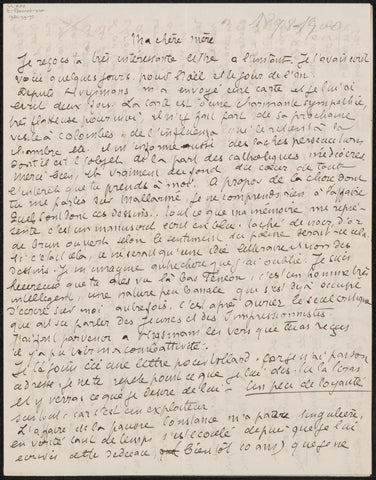 1898-1900
Ma chère mère
Je reçois ta très intéressante lettre à l'instant. Je t'avais écrit
voici quelques jours, pour Noël et le jour de l'an.
Depuis Huysmans m'a envoyé une carte et je lui ai
écrit deux fois. La carte est d'une charmante sympathie,
très flatteuse pour moi, il m'y fait part de sa prochaine
visite à Colombes, de l'influenza qui le retient à la
chambre, et m'informe aussi des lâches persécutions
dont il est l'objet de la part des catholiques médiocres
Merci bien, et vraiment du fond du cœur de tout
l'intérêt que tu prends à moi. A propos de la chose dont
tu me parles sur Mallarmé, je ne comprends rien à l'affaire
Quels sont donc ces dessins. Tout ce que ma mémoire me représente
c'est un manuscrit écrit en bleu, taché de noir, d'or
de brun ou vert selon le sentiment du poème serait-ce cela.
Si c'est cela, ce ne serait qu'une idée littéraire & non des
dessins. Je m'imagine autre chose que j'ai oublié. Je suis
heureux que tu aies vu là-bas Fénéon, c'est un homme très
intelligent, une nature peu banale qui s'est déjà occupé
d'écrire sur moi autrefois, c'est après Aurier le seul critique
qui ait su parler des Jeunes et des Impressionnistes
J'ai fait parvenir à Huysmans les vers que tu as reçus
il y a pu voir ma combattivité.
Je te joins ici une lettre pour Vollard, car je n'ai pas son
adresse, je ne te répète point ce que je lui dis, tu la liras
et y verras ce que je désire de lui - un peu de loyauté
surtout car c'est un exploiteur.
L'affaire de la pauvre Constance m'a parue singulière,
en vérité tant de temps s'est écoulé depuis que je lui
écrivis cette dédicace, (bientôt 10 ans) que je ne